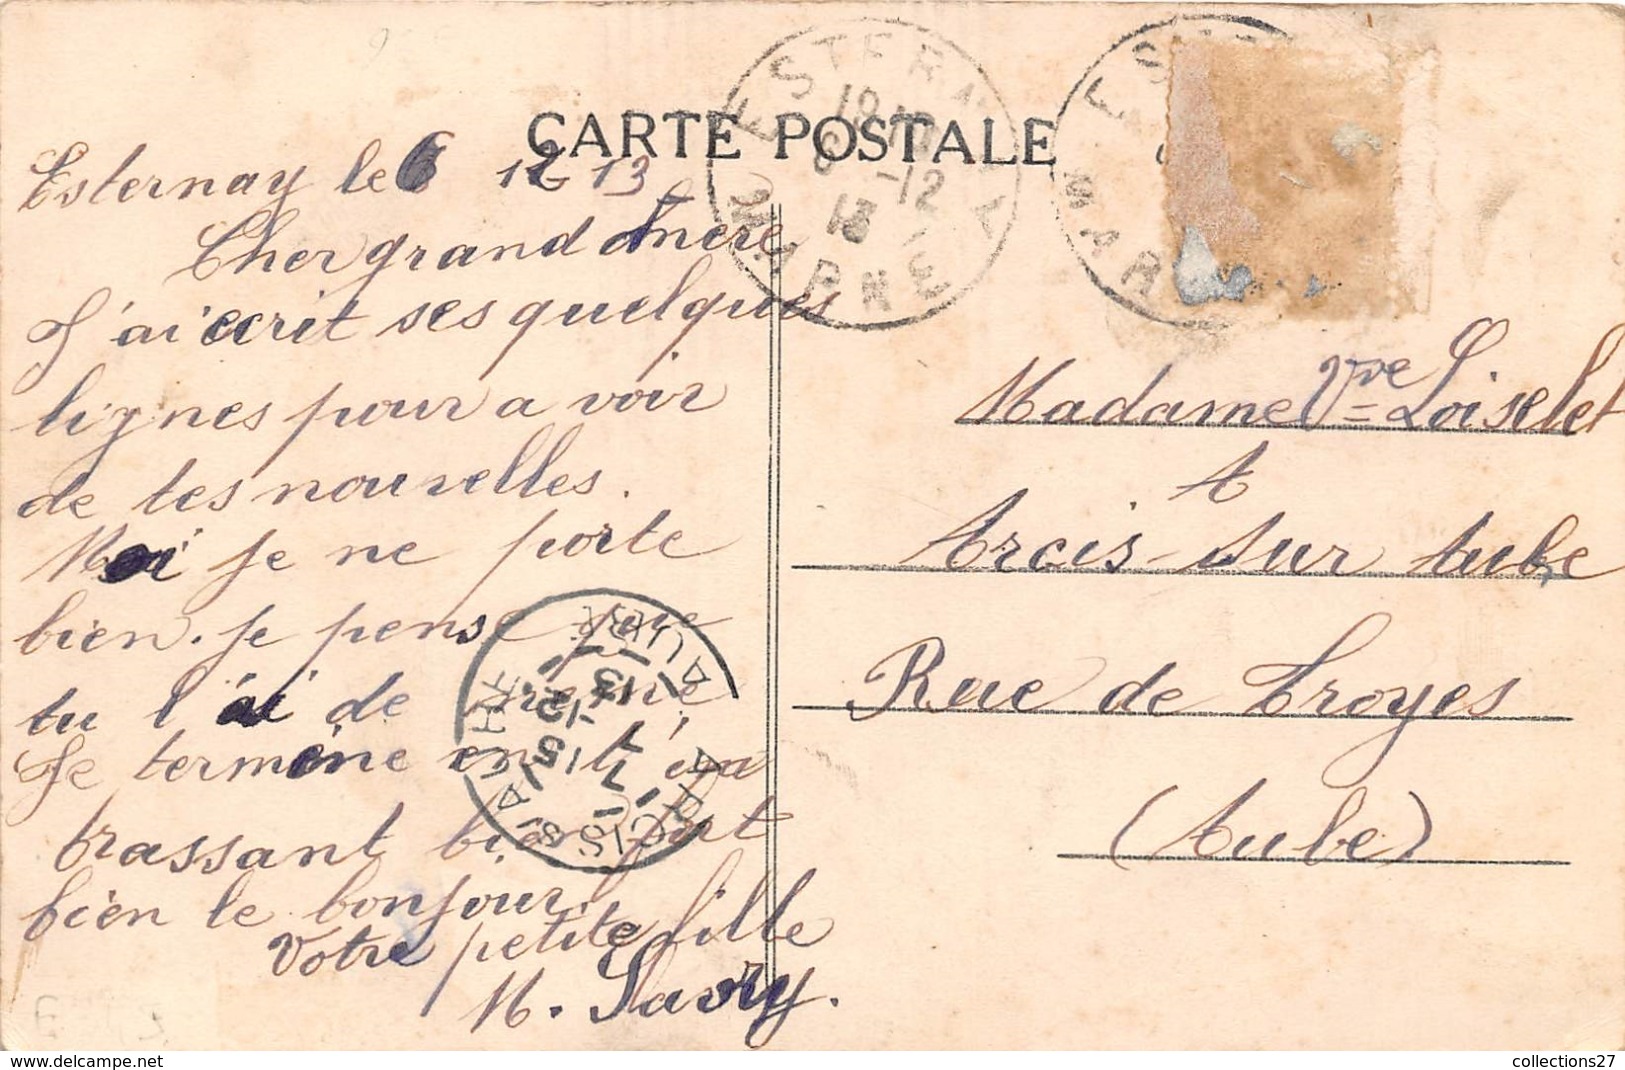 CARTE POSTALE
Esternay le 6 12 13
Cher grand mere
J'ai ecrit ses quelques
lignes pour a voir
de tes nouvelles.
Moi je ne porte
bien. je pense que
tu l'ai de meme
Je termine en t'em
brassant bien fort
bien le bonjour
Votre petite fille
M. Savry.
Madame Vve Loiselet
A
Arcis-sur Aube
Rue de Troyes
(Aube)
ESTERNAY
6 -12
13
MARNE
ES
MAR
ARCIS S/ AUBE
7 -12
13
AUBE
collections27